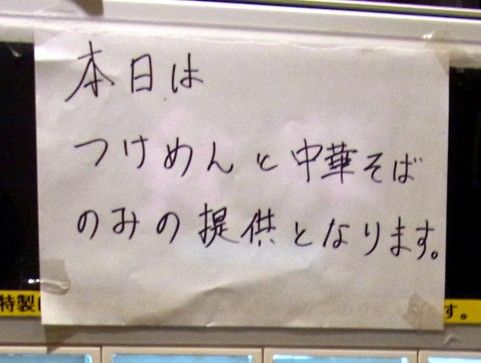 本日は
つけめんと中華そば
のみの提供となります。
特製に
す。